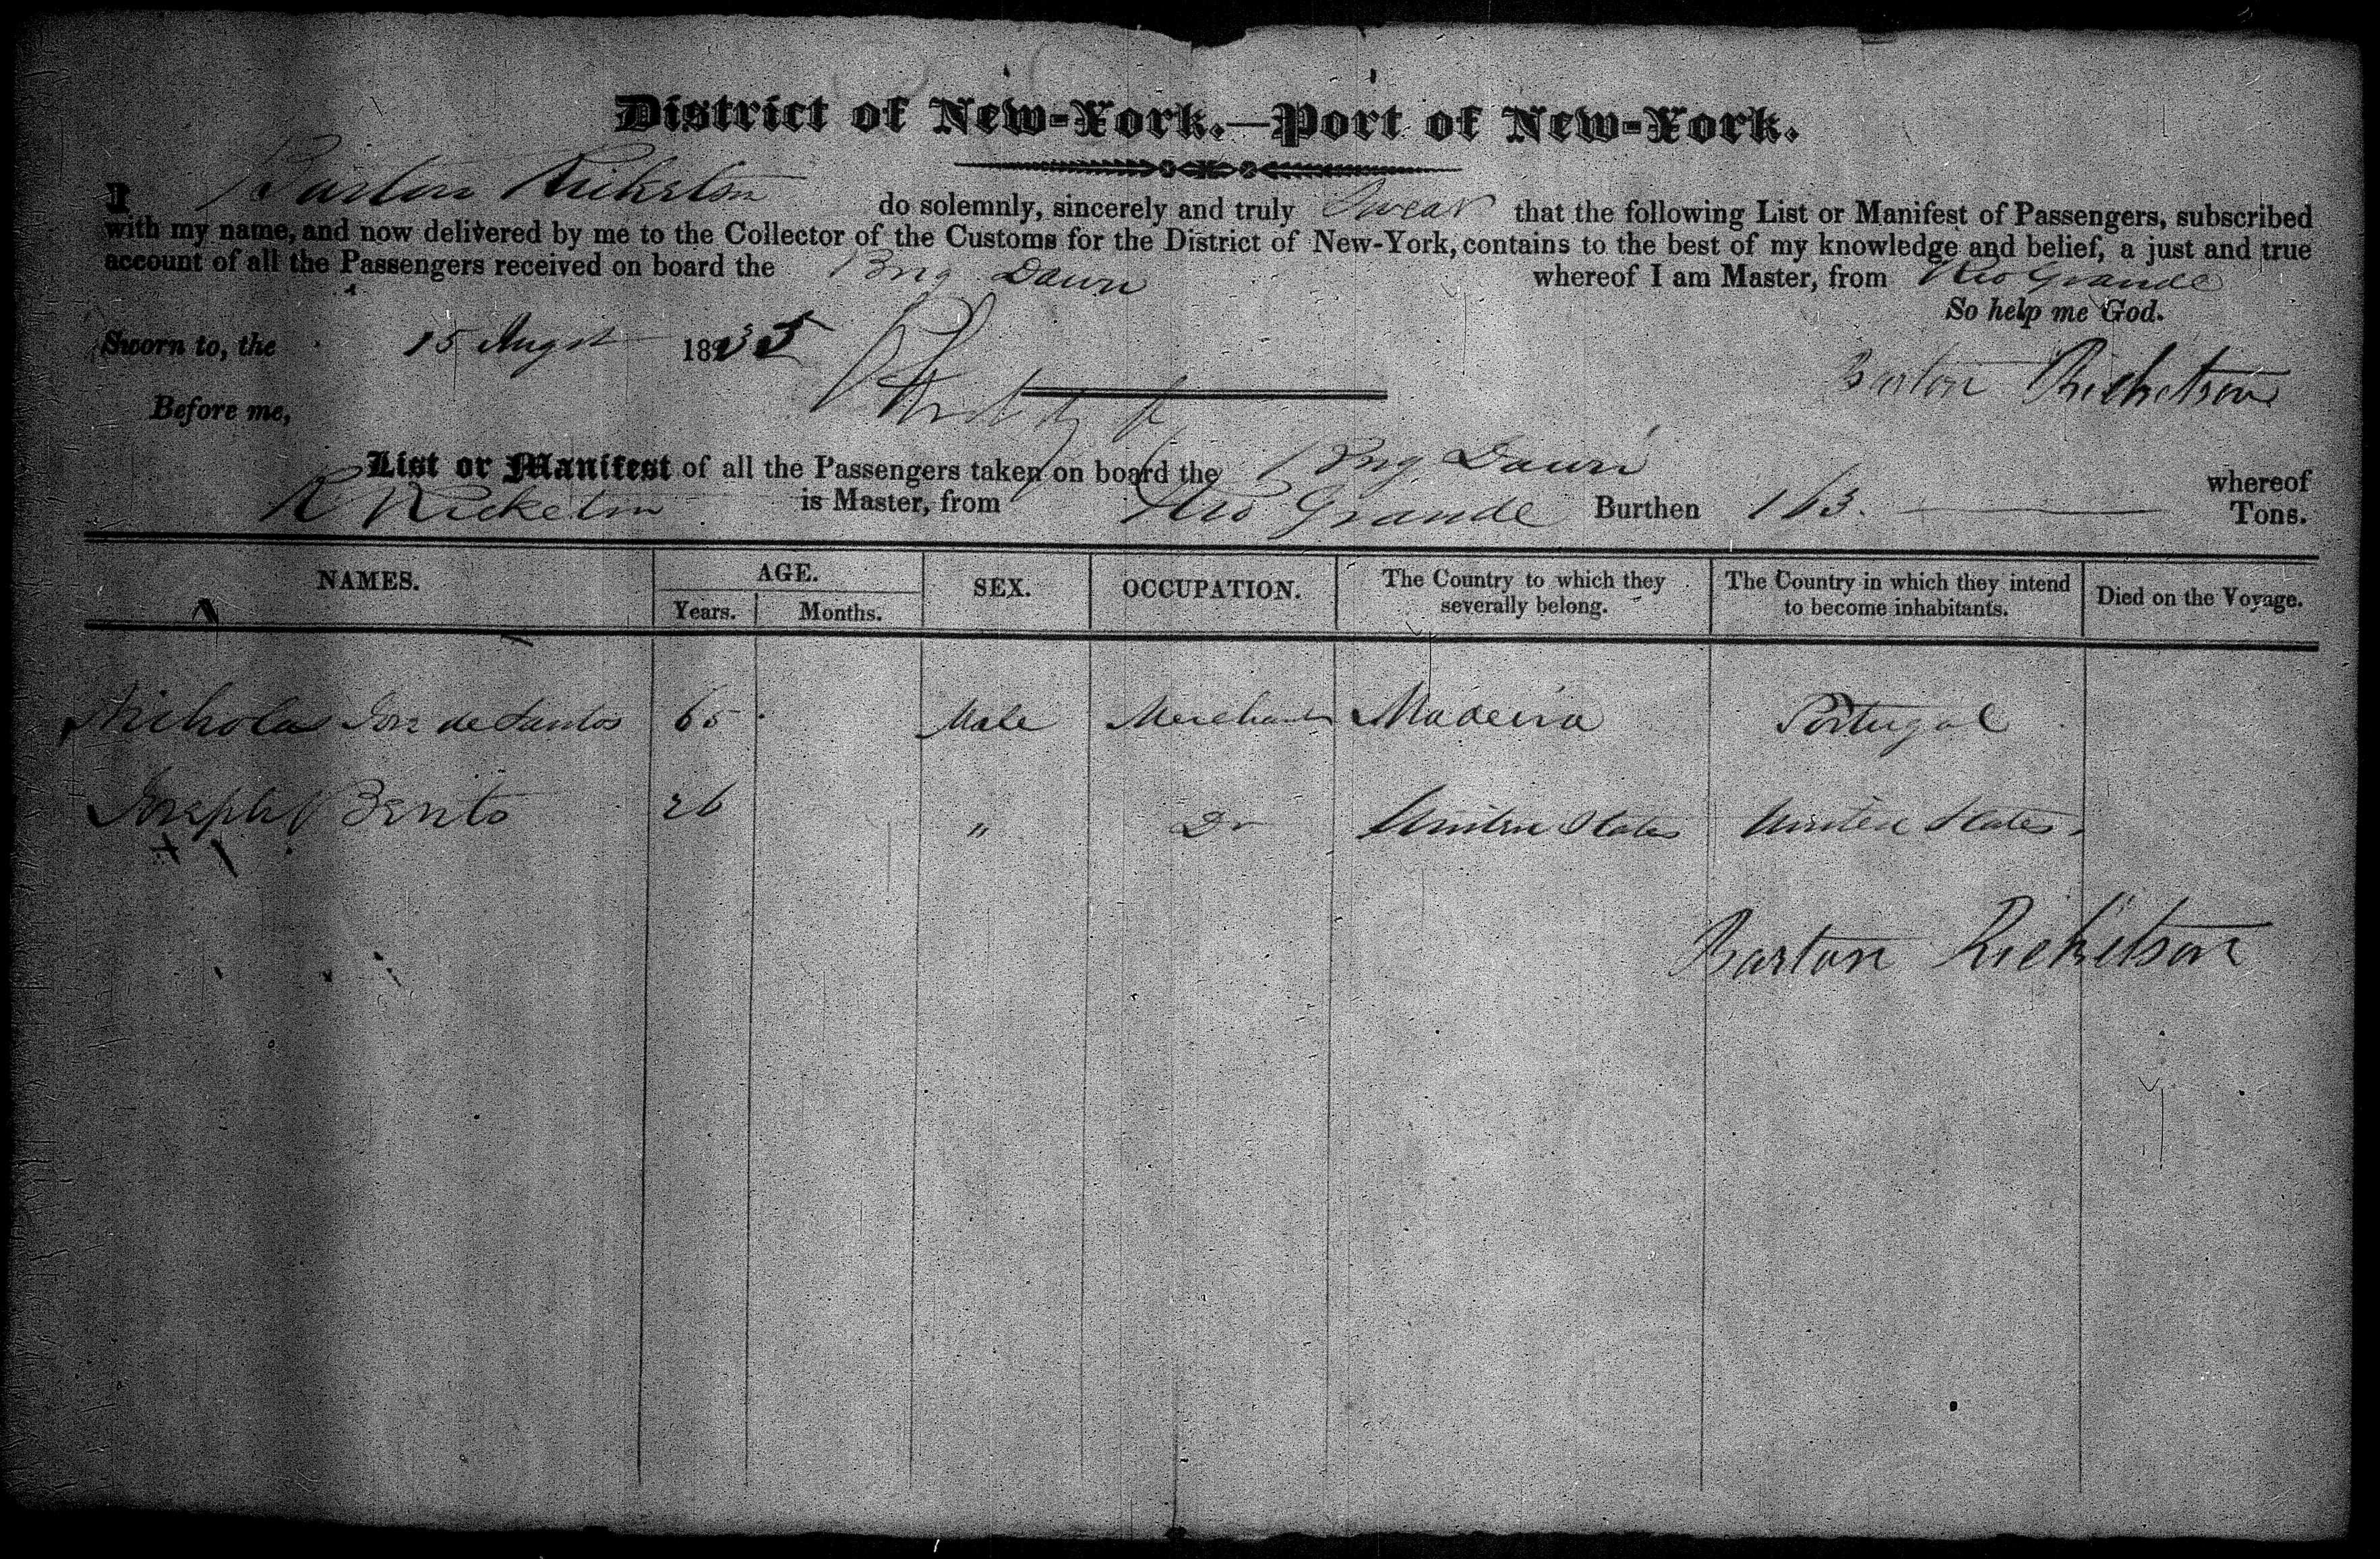 District of New-York.—Port of New-York.
I Barton Ricketson do solemnly, sincerely and truly Swear that the following List or Manifest of Passengers, subscribed
with my name, and now delivered by me to the Collector of the Customs for the District of New-York, contains to the best of my knowledge and belief, a just and true
account of all the Passengers received on board the Brig Dawn whereof I am Master, from Rio Grande
So help me God.
Sworn to, the 15 Augst 1835
Barton Ricketson
Before me,
List or Manifest of all the Passengers taken on board the Brig Dawn whereof
Ricketson is Master, from Rio Grande Burthen 163. Tons.
NAMES. AGE. SEX. OCCUPATION. The Country to which they severally belong. The Country in which they intend to become inhabitants. Died on the Voyage.
Years. Months.
Nicholas de Santos 65 Male Merchant Madeira Portugal
Joseph Bento 26 " Do United States United States.
Barton Ricketson